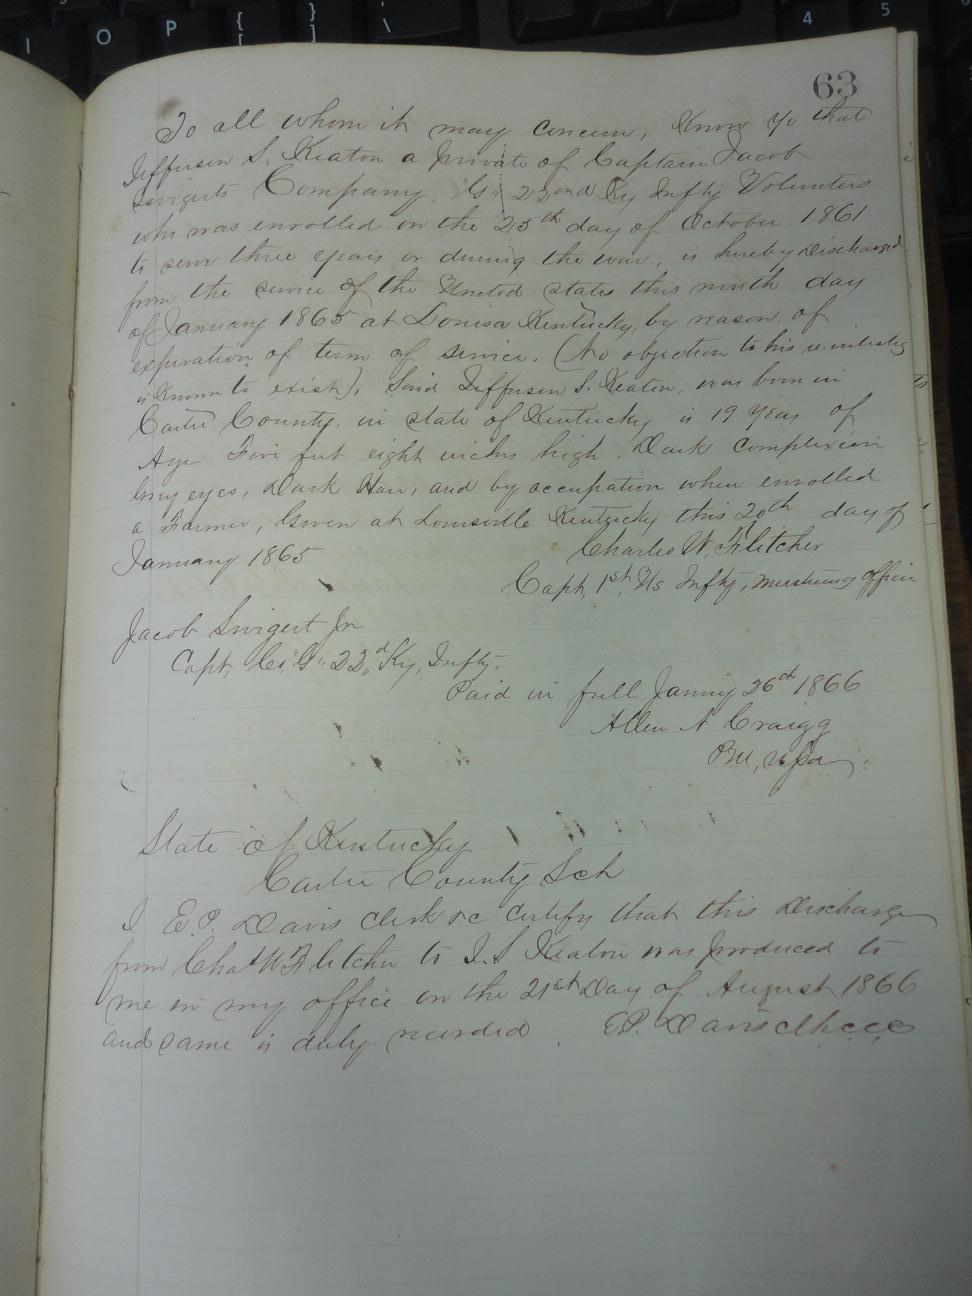 63
To all whom it may concern, Know Ye that
Jefferson S. Keaton a private of Captain Jacob
Swigerts Company, "G" 22nd Ky Infty Volunters
who was enrolled on the 25th day of October 1861
to serve three years or during the war, is hereby Discharged
from the service of the United states this ninth day
of January 1865 at Louisa Kentucky, by reason of
expiration of term of service. (No objection to his re-inlisting
is Known to exist). Said Jefferson S. Keaton, was born in
Carter County in state of Kentucky is 19 Years of
Age Five feet eight inches high, Dark complexion
Grey eyes, Dark Hair, and by occupation when enrolled
a Farmer, Given at Louisville Kentucky this 20th day of
January 1865
Charles W. Fletcher
Capt, 1st, Us Infty, mustering officer
Jacob Swigert Jr
Capt, Co, "G" 22,d Ky, Infty,
Paid in full Januy 26th 1866
Allen A Craigg
State of Kentucky
Carter County Sct
I E.P. Davis clerk &c certify that this Discharge
from Chas W Fletcher to J. S Keaton was produced to
me in my office on the 21st Day of August 1866
and same is duly recorded E.P. Davis clkccc
I
O
P
{
[
}
]
\
4
5